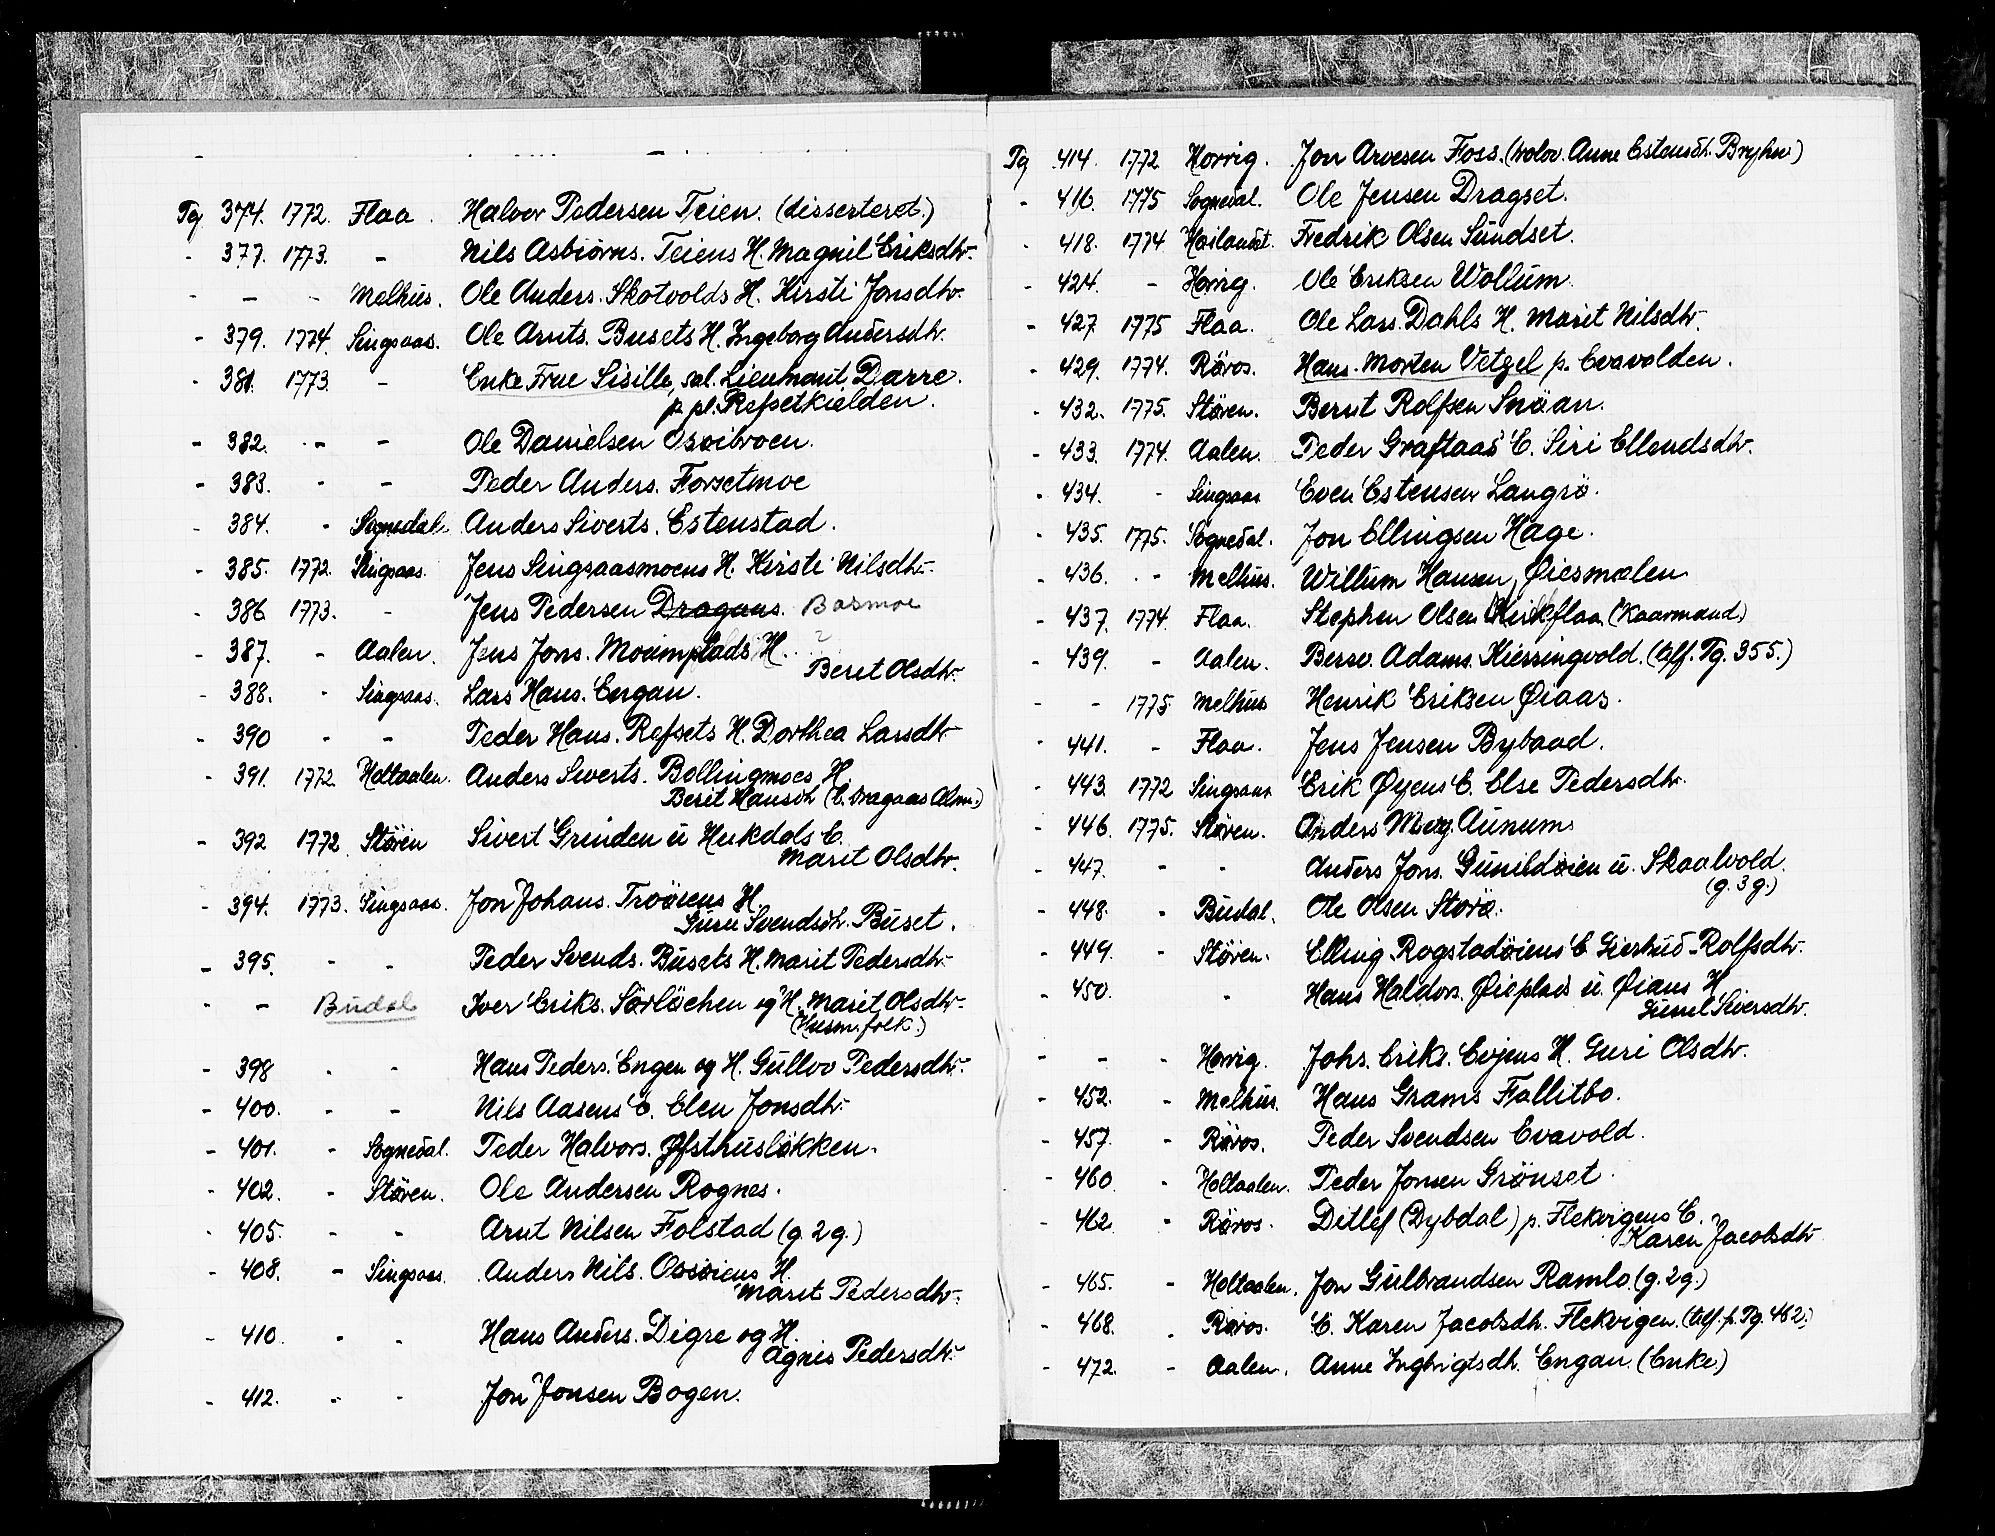 Tg 374. 1772. Flaa. Halvor Pedersen Teien. (disserteret.)
- 377. 1773. - Nils Asbiörns. Teiens H. Magnil Eriksdtr.
- - - Melhus. Ole Anders. Skotvolds H. Kirsti Jonsdtr.
- 379. 1774. Singsaas. Ole Arnts. Busets H. Ingeborg Andersdtr.
- 381. 1773. - Enke Frue Sisille, sal. Lieutnant Darre.
p. pl. Refsetkielden.
- 382. - - Ole Danielsen
- 383. - - Peder Anders. Forsetmoe
- 384. - Sognedal. Anders Siverts. Estenstad.
- 385. 1772. Singsaas. Jens Singsaasmoens H. Kirsti Nilsdtr.
- 386 1773. - Jens Pedersen Dragaas. Bosmoe
- 387. - Aalen. Jens Jons. Moumplads H. ?
Beret Olsdtr.
- 388. - Singsaas. Lars Hans. Engan.
- 390 - - Peder Hans. Refsets H. Dorthea Larsdtr.
- 391. 1772 Holtaalen. Anders Siverts. Bollingmoes H.
Berit Hansdtr (E. Dragaas Alm.)
- 392 1772. Stören Sivert Grinden u Hukdals E.
Marit Olsdtr.
- 394. 1773. Singsaas. Jon Johans. Trööiens H.
Guru Svendsdtr. Buset.
- 395. - - Peder Svends. Busets H. Marit Pedersdtr.
- - Budal Iver Eriks. Sörlöchen og H. Marit Olsdtr.
(Husm.folk.)
- 398 - - Hans Peders. Engen og H. Gullov Pedersdtr.
- 400. - - Nils Aasens E. Elen Jonsdtr.
- 401. - Sognedal. Peder Halvors. Öfsthuslökken.
- 402. - Stören. Ole Andersen Rognes.
- 405. - - Arnt Nilsen Folstad (g. 2 g.)
- 408. - Singsaas. Anders Nils. Ossöiens H.
Marit Pedersdtr.
- 410. - - Hans Anders. Digre og H.
Agnis Pedersdtr.
- 412. - - Jon Jonsen Bogen.
Tg 414. 1772 Horrig. Jon Arvesen Foss. (trolov. Anne Estensdtr. Bryhn)
- 416. 1775 Sognedal. Ole Jensen Dragset.
- 418. 1774 Höilandet. Fredrik Olsen Sundset.
- 424. - Horrig. Ole Eriksen Wollum.
- 427. 1775 Flaa. Ole Lars. Dahls H. Marit Nilsdtr.
- 429. 1774. Röros. Hans Morten Vetgel p. Evavolden.
- 432. 1775. Stören. Bernt Rolfsen Snöan.
- 433. 1774. Aalen. Peder Graftaas E. Siri Ellendsdtr.
- 434. - Singsaas Even Estensen Langsö.
- 435. 1775. Sognedal. Jon Ellingsen Hage.
- 436. - Melhus. Willum Hansen Öiesmælen.
- 437. 1774. Flaa. Stephen Olsen Kirkflaa. (Kaarmand)
- 439. - Aalen. Bersv. Adams. Kierringvold. (Aff. Tg. 355.)
- - 1775. Melhus Henrik Eriksen Øiaas.
- 441. - Flaa. Jens Jensen Bybaad.
- 443 1772 Singsaas Erik Øyens E. Else Pedersdtr.
- 446. 1775. Stören. Anders Mog. Aunum.
- 447. - - Anders Jons. Gunildöien u. Skaalvold.
(g. 3 g.)
- 448. - Budal. Ole Olsen Storö.
- 449. - Stören. Elling Rogstadöiens E Giertrud Rolfsdtr.
- 450. - Hans Haldors. Øieplads u. Øians H.
Gunil Siversdtr.
- - - Horrig. Johs. Eriks. Evjens H. Guri Olsdtr.
- 452. - Melhus. Hans Grams Fallitbo.
- 457. - Röros. Peder Svendsen Evavold.
- 460. - Holtaalen. Peder Jonsen Grönset.
- 462. - Röros. Ditlef (Dybdal) p. Flekvigens E.
Karen Jacobsdtr.
- 465. - Holtaalen. Jon Gulbrandsen Ramlo (g. 2 g.)
- 468. - Röros. E. Karen Jacobsdtr. Flekvigen. (Aff. p. Tg. 462.)
- 472. - Aalen. Anne Ingbrigtsdtr. Engan. (Enke)